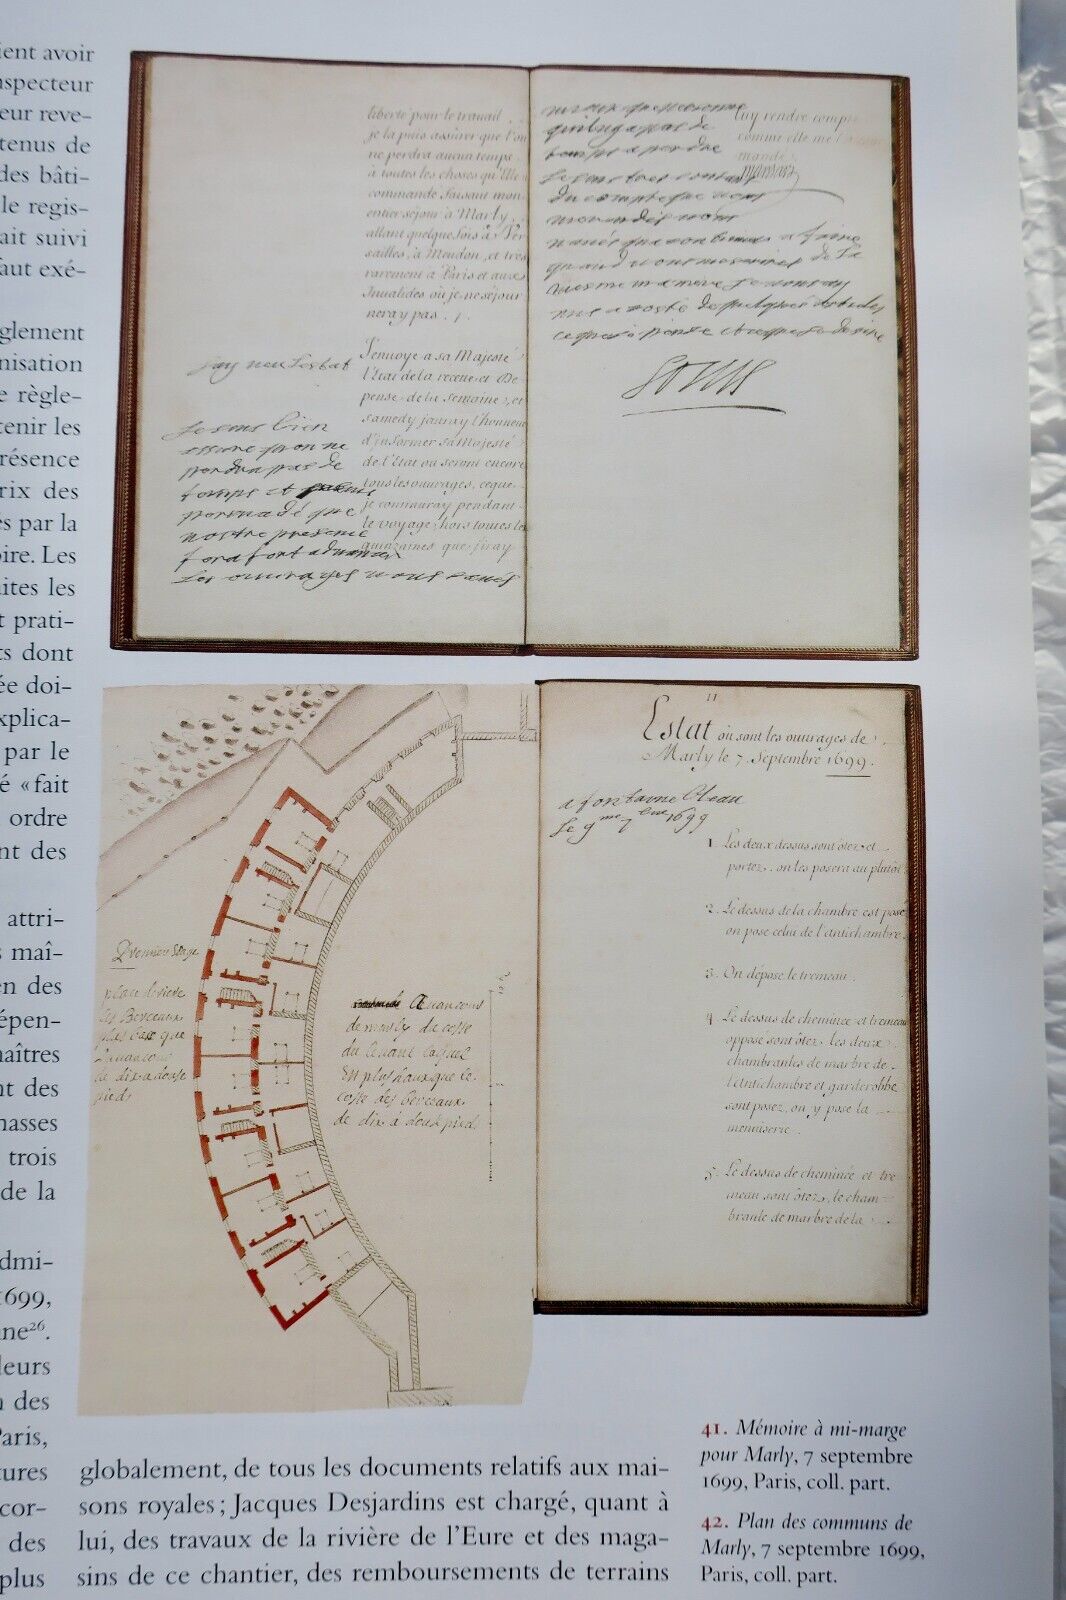 ient avoir
nspecteur
eur reve-
tenus de
des bâti-
le regis-
ait suivi
faut exé-
glement
nisation
e règle-
tenir les
résence
rix des
és par la
oire. Les
ites les
t prati-
ts dont
ée doi-
xplica-
par le
é « fait
ordre
nt des
attri-
s maî-
en des
épen-
naîtres
nt des
nasses
trois
de la
dmi-
1699,
ine²⁶.
leurs
n des
Paris,
tures
cor-
des
plus
liberté pour le travail
je la puis assûrer que l'on
ne perdra aucun temps,
à toutes les choses qu'Elle
commande faisant mon
entier séjour à Marly,
allant quelquefois à Ver
sailles, à Meudon, et très
rarement à Paris et aux
Invalides où je ne séjour
neray pas.
J'envoye a sa Majesté
l'Etat de la recette et De-
pense de la semaine, et
samedy j'auray l'honneur
d'informer sa Majesté
de l'Etat ou seront encore
tous les ouvrages, ce que
je continuray pendant
le voyage, hors toutes les
quinzaines que j'iray
jay veu lestat
Je suis bien
assuré quon ne
perdra pas de
temps et
persuadé que
vostre presence
fera fort advancer
les ouvrages vous
luy rendre compte
comme elle me l'a
mandé.
mansart
temps a perdre
Je suis tres content
du compte que vous
me rendés
quand vous
Louis
Premier Etage
plan
les Berceaux
plus bas que
de dix a douse
pieds
de marly du costé
du levant laquel
est plus haut que le
costé des berceaux
de dix à douse pieds
11
Estat où sont les ouvrages de
Marly le 7. Septembre 1699.
a fontaine bleau
le 9me 7bre 1699
1. Les deux dessus sont ôtez et
portez, on les posera au plutôt
2. Le dessus de la chambre est posé
on pose celui de l'antichambre.
3. On dépose le tremeau.
4. Le dessus de cheminée et tremeau
opposé sont ôtez, les deux
chambranles de marbre de
l'Antichambre et garderobbe
sont posez, on y pose la
menuiserie.
5. Le dessus de cheminée et tre
meau sont ôtez, le cham-
branle de marbre de la
41. Mémoire à mi-marge
pour Marly, 7 septembre
1699, Paris, coll. part.
42. Plan des communs de
Marly, 7 septembre 1699,
Paris, coll. part.
globalement, de tous les documents relatifs aux mai-
sons royales ; Jacques Desjardins est chargé, quant à
lui, des travaux de la rivière de l'Eure et des maga-
sins de ce chantier, des remboursements de terrains